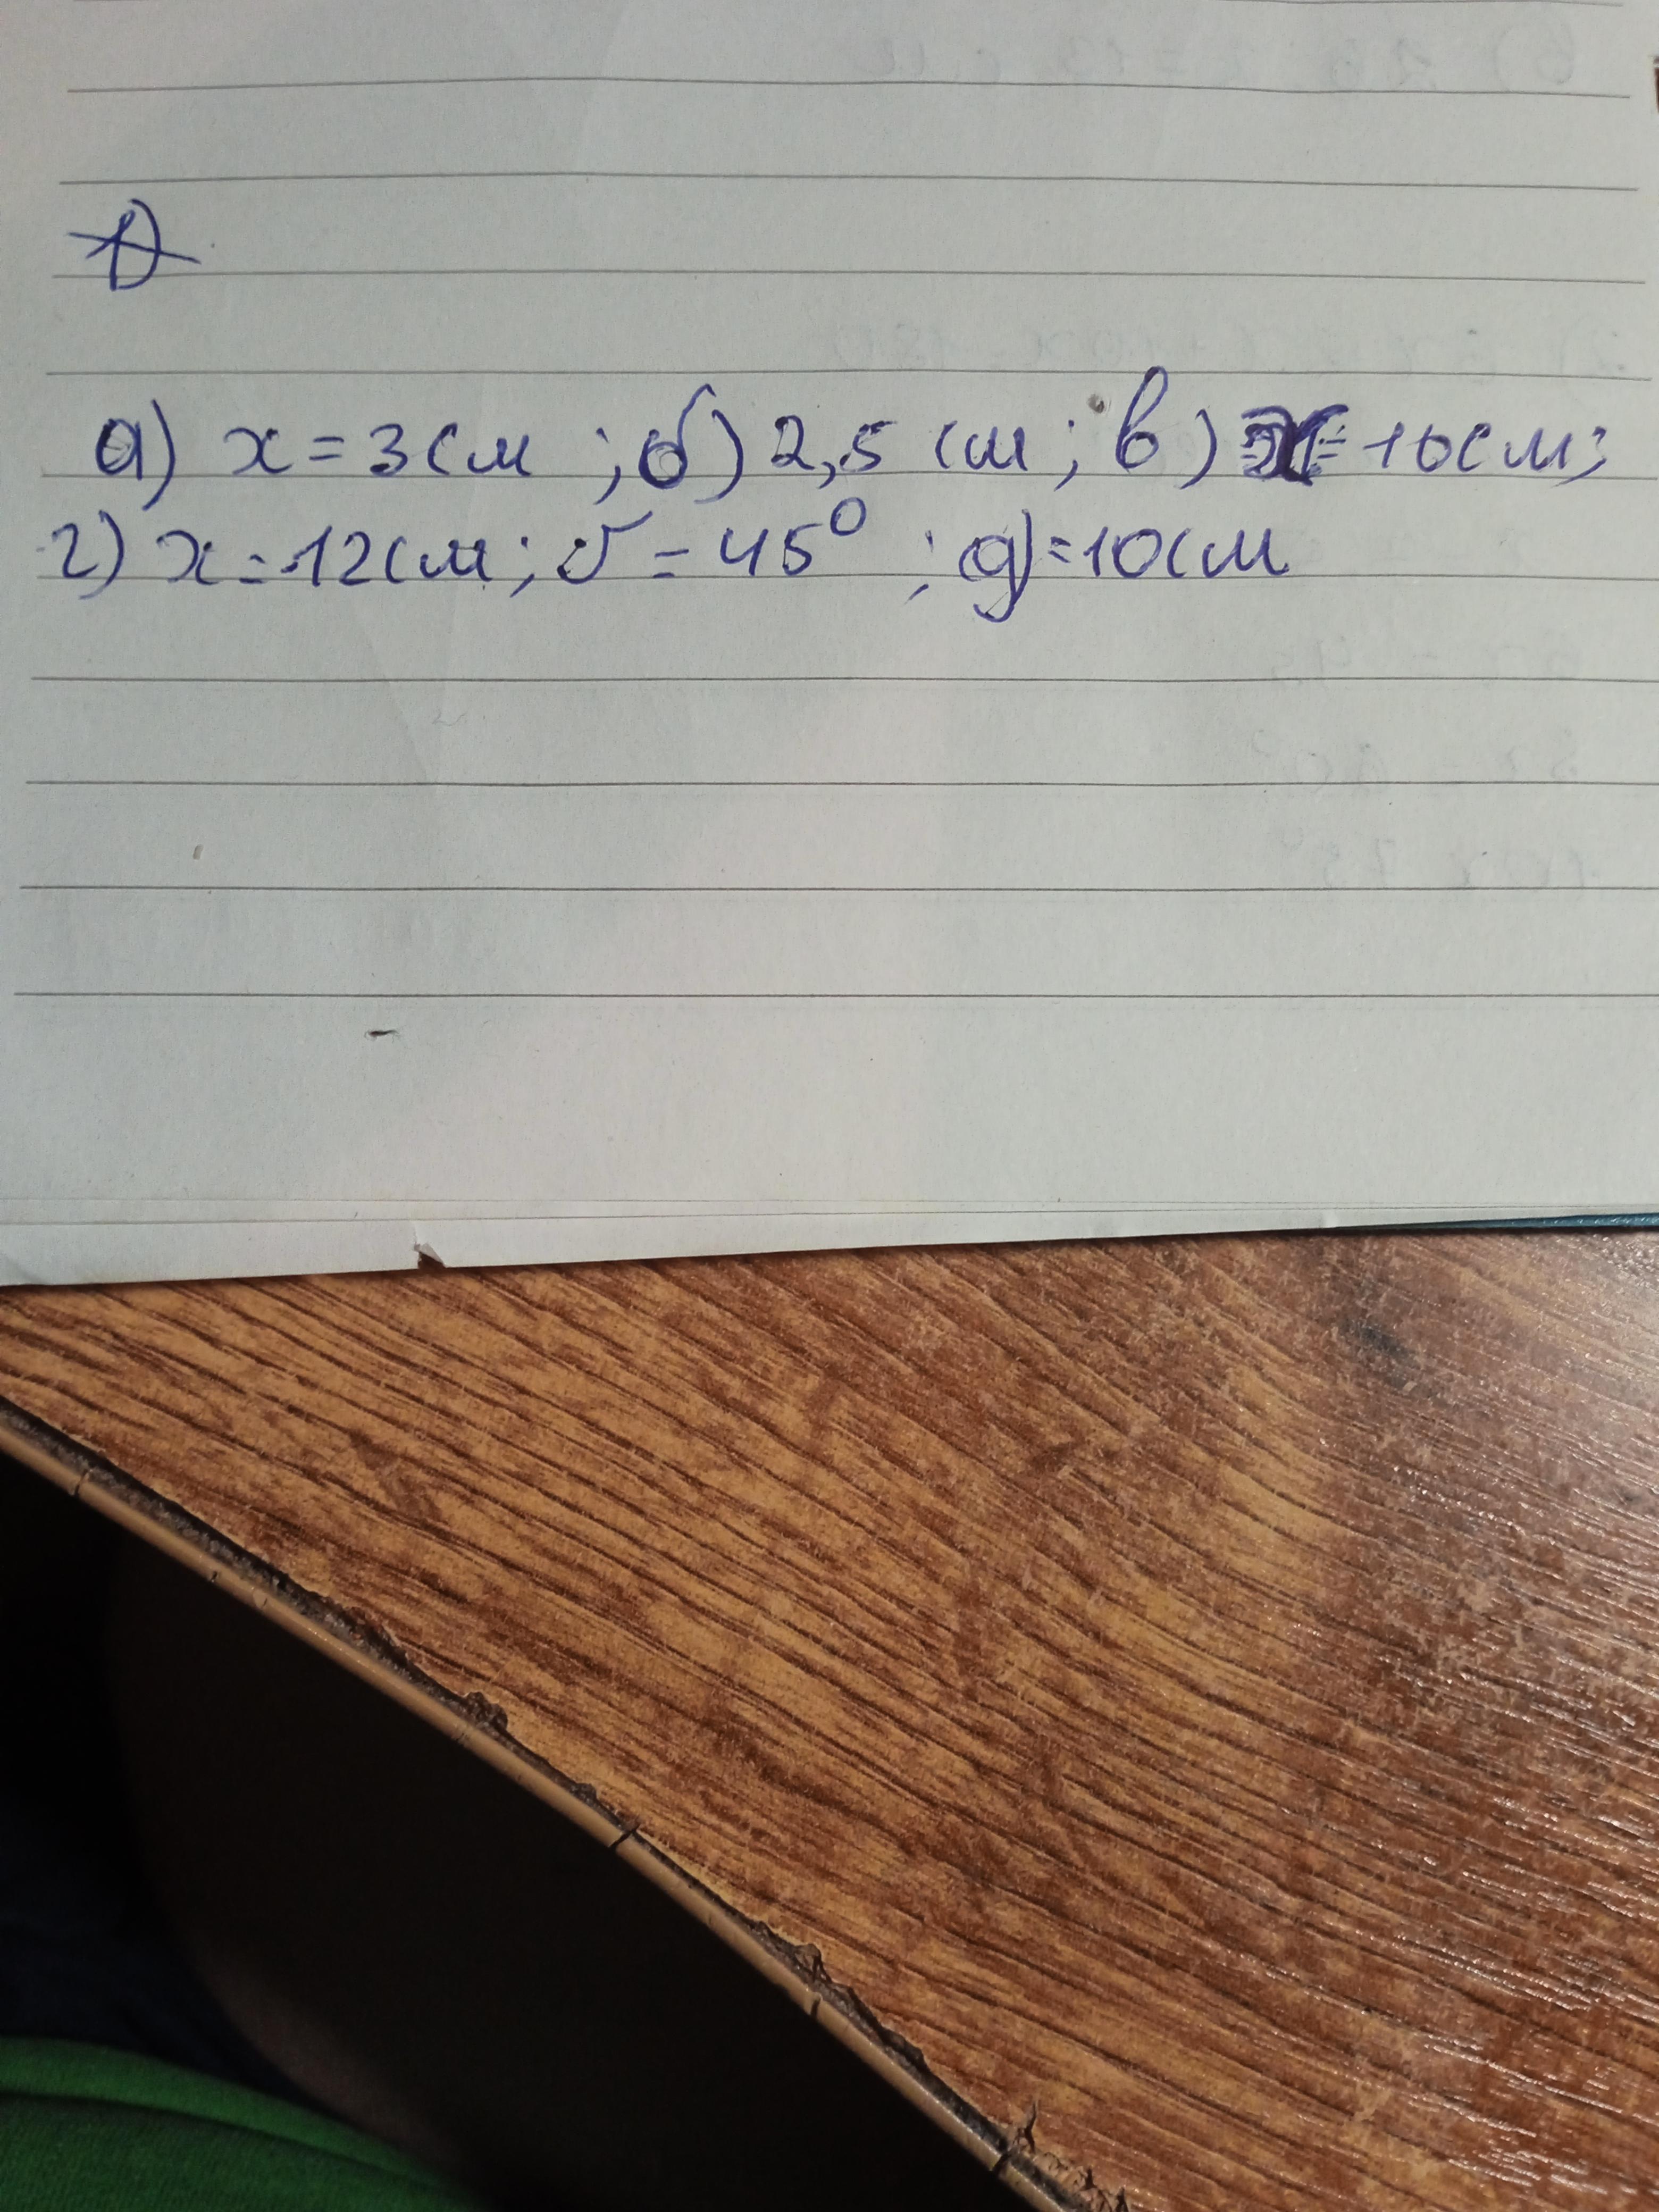 а) x = 3 см ; б) 2,5 см ; в) x = 10 см;
г) x = 12 см; v = 45° ; д) = 10 см